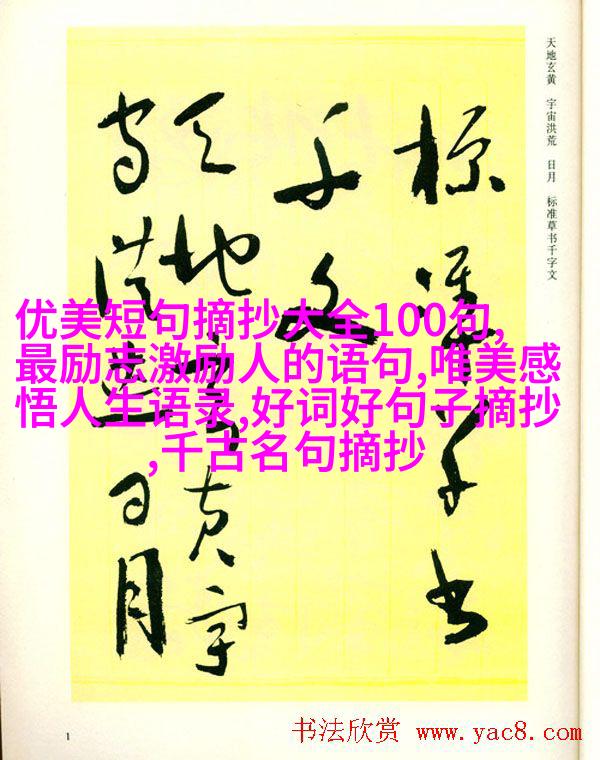 天地玄黄 宇宙洪荒 日月 标准草书千字文
標準草書
千文
天地玄黄宇
宙洪荒日月
优美短句摘抄大全100句,
最励志激励人的语句,唯美感
悟人生语录,好词好句子摘抄
,千古名句摘抄
1
书法欣赏 www.yac8.com